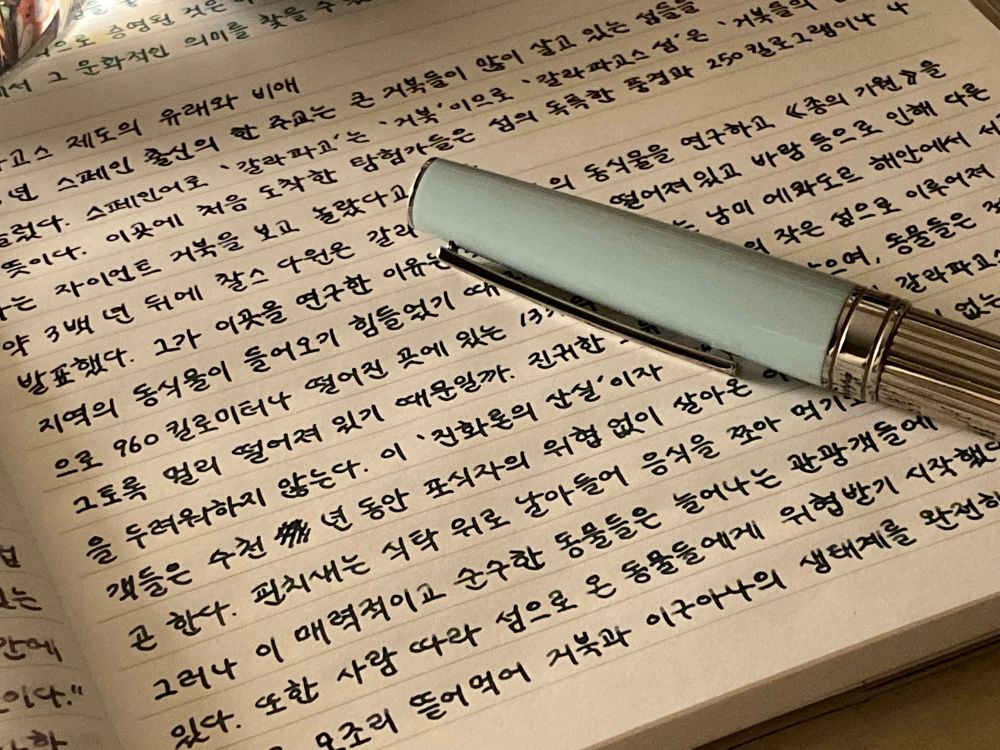 으로 증명된 것은
에서 그 문화적인 의미를 찾을 수
고스 제도의 유래와 비애
년 스페인 출신의 한 주교는 큰 거북들이 많이 살고 있는 섬들을
불렀다. 스페인어로 '갈라파고'는 '거북'이으로 '갈라파고스 섬'은 '거북들의
뜻이다. 이곳에 처음 도착한 탐험가들은 섬의 독특한 풍경과 250킬로그램이나 나
가는 자이언트 거북을 보고 놀랐다고
약 3백 년 뒤에 찰스 다윈은 갈라 의 동식물을 연구하고 《종의 기원》을
발표했다. 그가 이곳을 연구한 이유는 떨어져있고 바람 등으로 인해 다른
지역의 동식물이 들어오기 힘들었기 때 는 남미 에콰도르 해안에서 서
으로 960킬로미터나 떨어진 곳에 있는 13 의 작은 섬으로 이루어져
그토록 멀리 떨어져 있기 때문일까. 진귀한 많으며, 동물들은
을 두려워하지 않는다. 이 '진화론의 산실'이자 갈라파고스
객들은 수천 년 동안 포식자의 위협 없이 살아온 없는
곤 한다. 핀치새는 식탁 위로 날아들어 음식을 쪼아 먹기
그러나 이 매력적이고 순구한 동물들은 늘어나는 관광객들에
있다. 또한 사람 따라 섬으로 온 동물들에게 위협받기 시작했
모조리 뜯어먹어 거북과 이구아나의 생태계를 완전히
는
간에
이다."